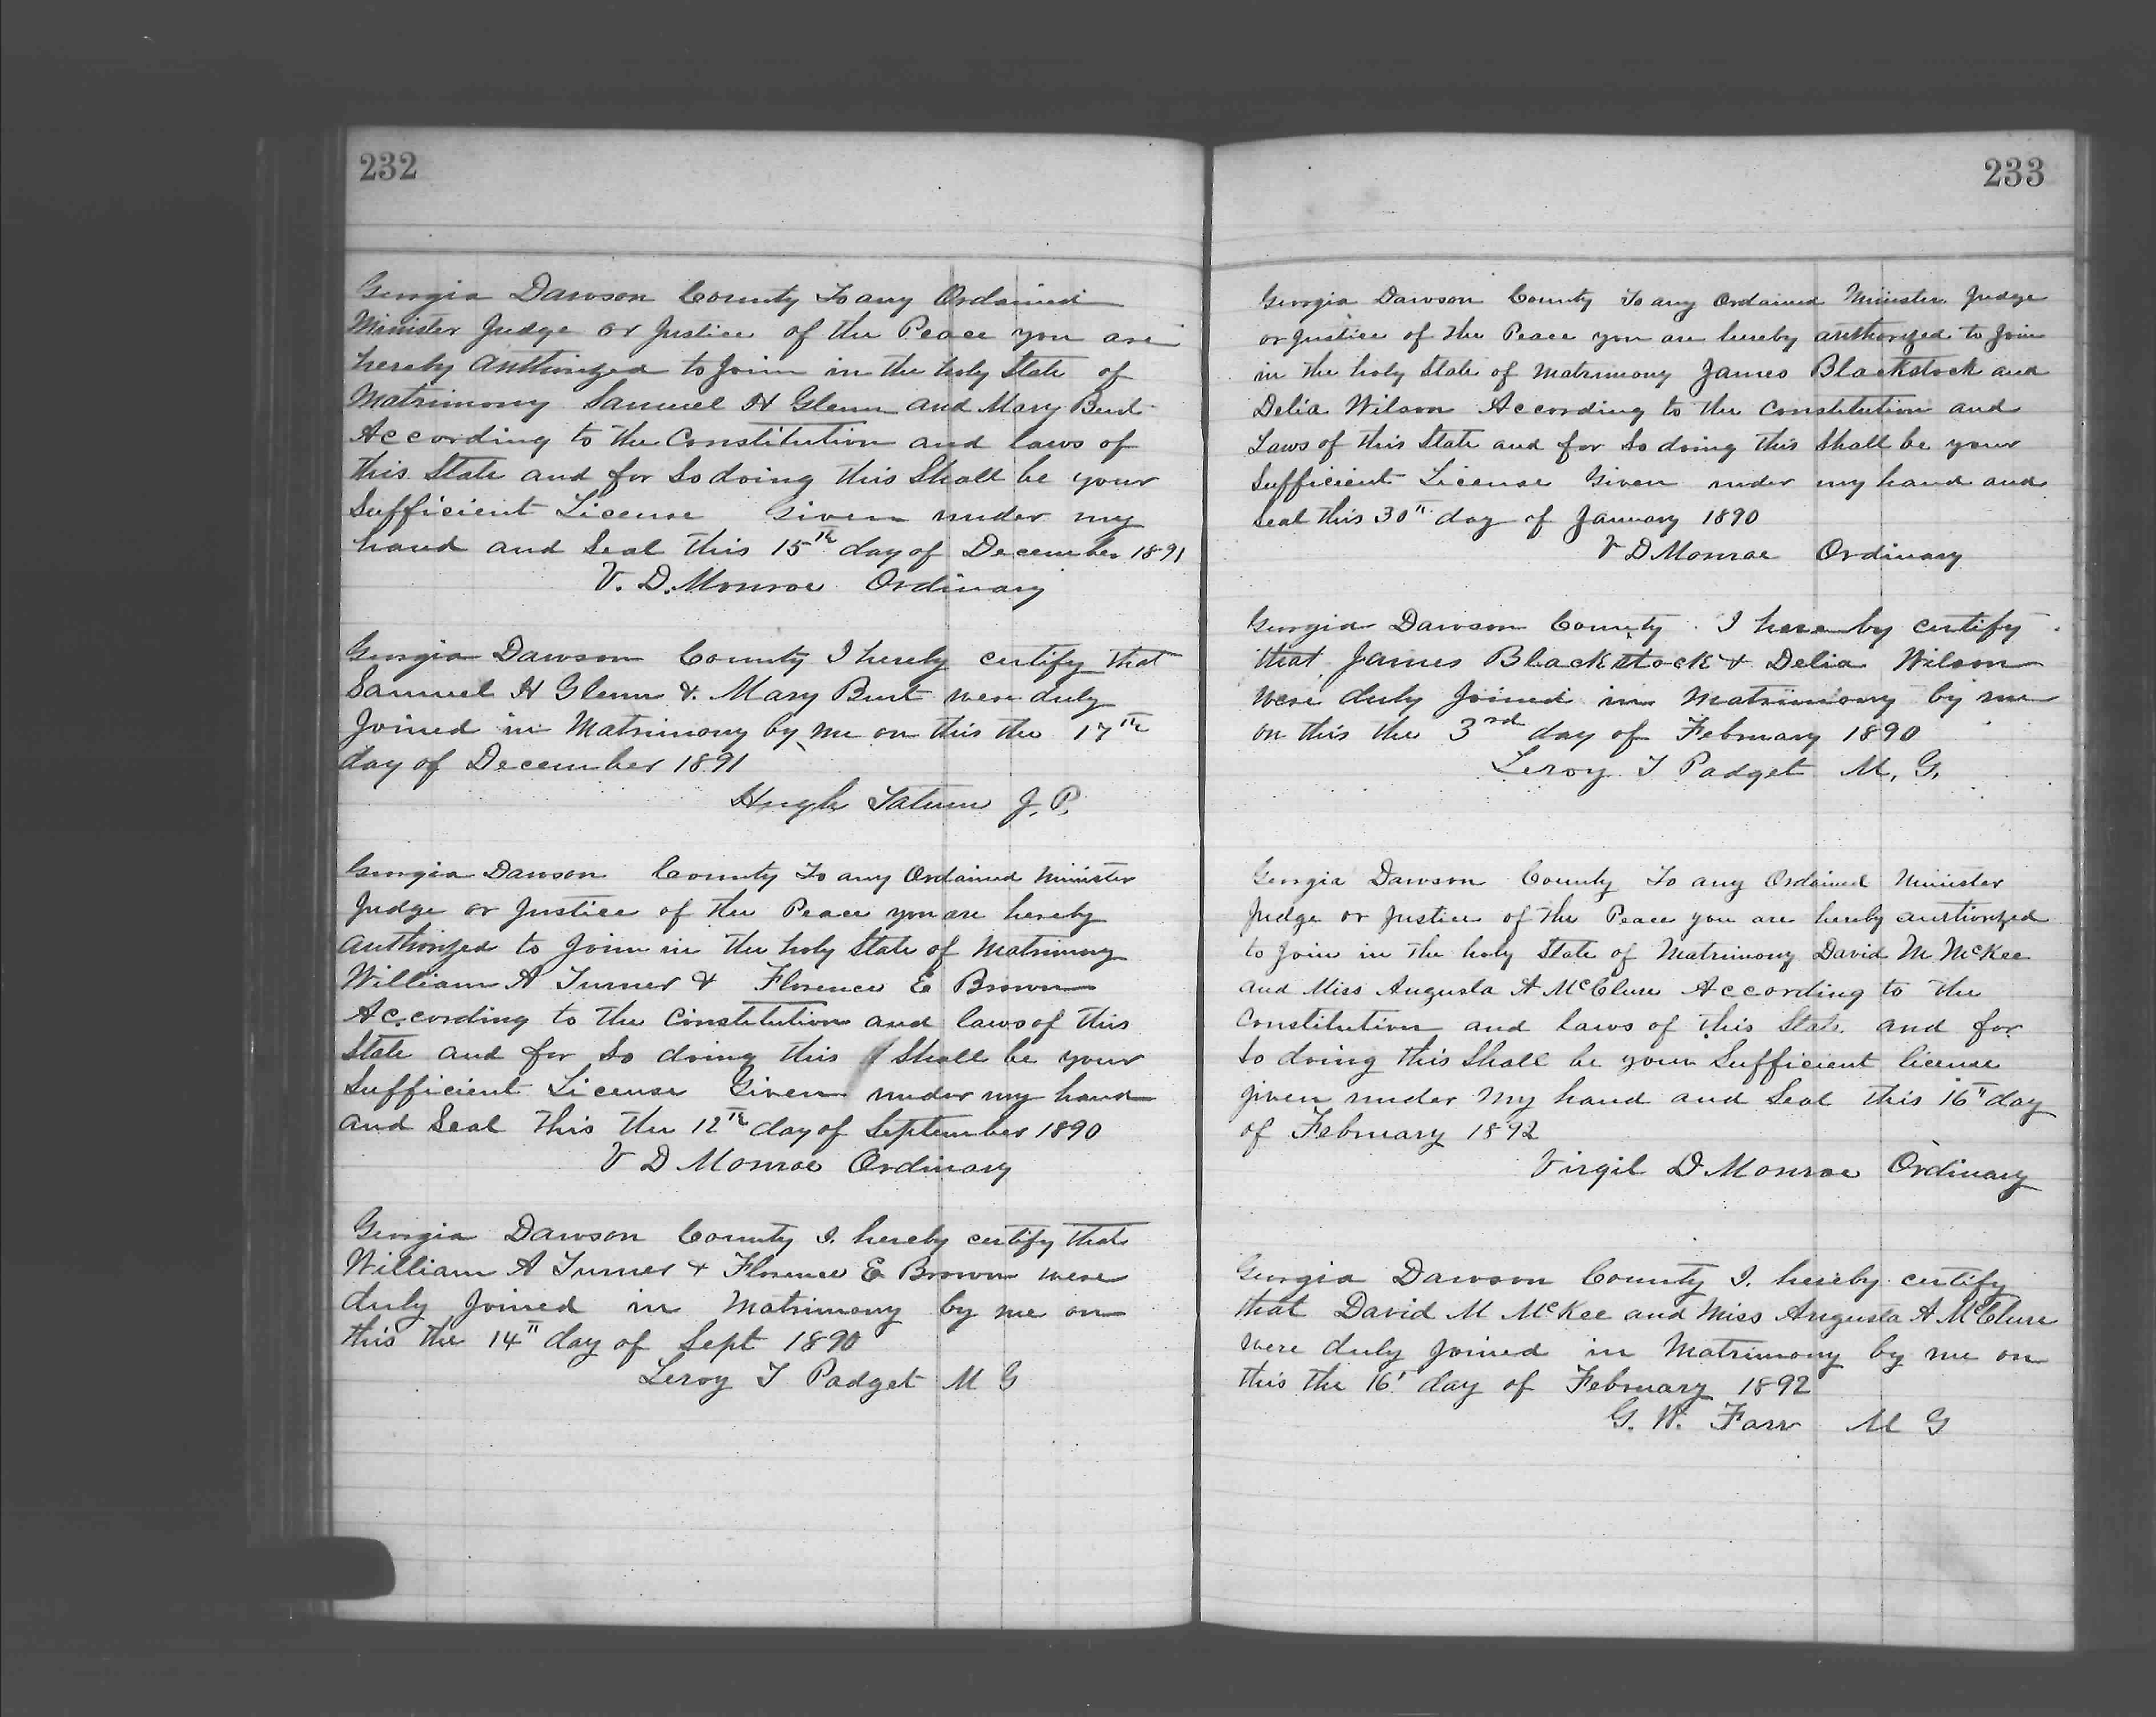 232
Georgia Dawson County To any Ordained
Minister Judge or Justice of the Peace you are
hereby Authorized to Join in the holy State of
Matrimony Samuel H Glenn and Mary Burt
According to the Constitution and laws of
this State and for So doing this Shall be your
Sufficient License Given under my
hand and Seal this 15th day of December 1891
V. D. Monroe Ordinary
Georgia Dawson County I hereby certify that
Samuel H Glenn & Mary Burt were duly
Joined in Matrimony by me on this the 17th
day of December 1891
Hugh Tatum J. P.
Georgia Dawson County To any Ordained Minister
Judge or Justice of the Peace you are hereby
authorized to Join in the holy State of Matrimony
William A Turner & Florence E Brown
According to the Constitution and laws of this
State and for So doing this Shall be your
Sufficient License Given under my hand
and Seal this the 12th day of September 1890
V D Monroe Ordinary
Georgia Dawson County I hereby certify that
William A Turner & Florence E Brown were
duly Joined in Matrimony by me on
this the 14" day of Sept 1890
Leroy T Padget M G
233
Georgia Dawson County To any Ordained Minister Judge
or Justice of the Peace you are hereby authorized to Join
in the holy State of Matrimony James Blackstock and
Delia Wilson According to the Constitution and
Laws of this State and for So doing this Shall be your
Sufficient License Given under my hand and
Seal this 30" day of January 1890
V D Monroe Ordinary
Georgia Dawson County I hereby certify
that James Blackstock & Delia Wilson
were duly Joined in Matrimony by me
on this the 3rd day of February 1890
Leroy T Padget M. G.
Georgia Dawson County To any Ordained Minister
Judge or Justice of the Peace you are hereby authorized
to Join in the holy State of Matrimony David M McKee
and Miss Augusta A McClure According to the
Constitution and laws of this State and for
So doing this Shall be your Sufficient license
given under my hand and Seal this 16" day
of February 1892
Virgil D Monroe Ordinary
Georgia Dawson County I. hereby certify
that David M McKee and Miss Augusta A McClure
were duly Joined in Matrimony by me on
this the 16' day of February 1892
G. W. Farr M G